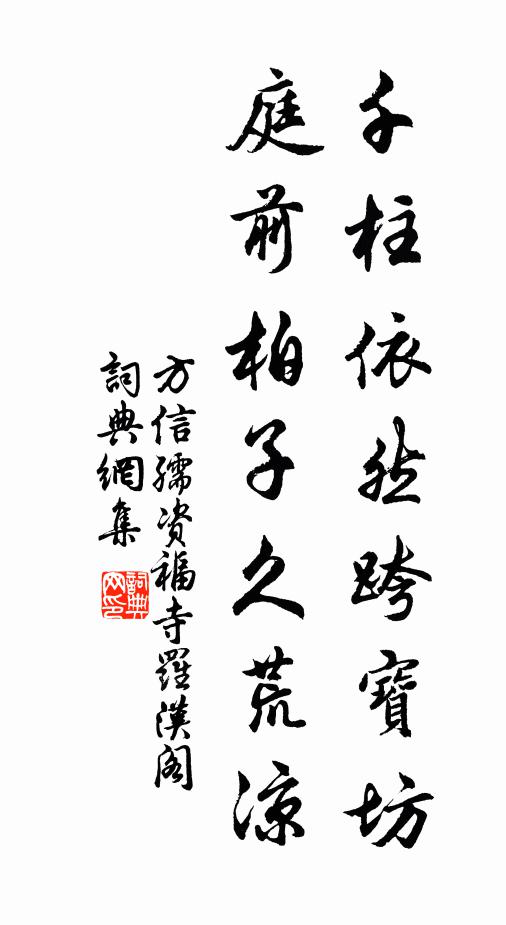 千柱依然跨寶坊
庭前柏子久荒涼
方信孺資福寺羅漢閣
詞典網集
詞典網印